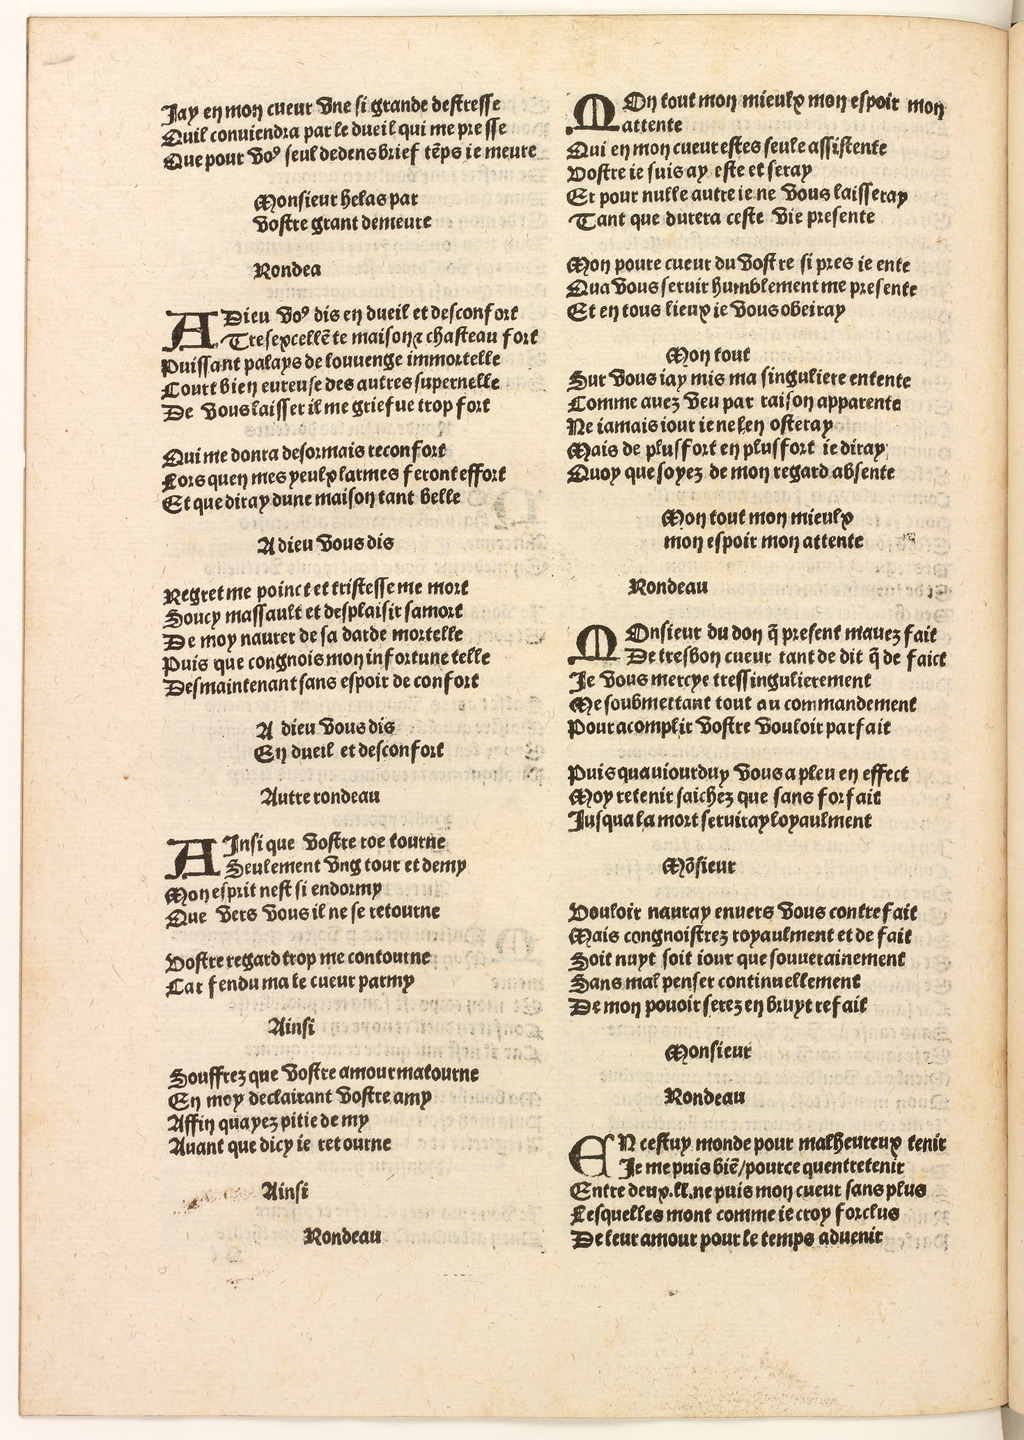 Jay en mon cueur vne si grande destresse
Quil conuiendra par le dueil qui me presse
Que pour voꝰ seul dedens brief tẽps ie meure
Monsieur helas par
Vostre grant demeure
Rondea
ADieu voꝰ dis en dueil et desconfort
Tresexcellẽte maison ⁊ chasteau fort
Puissant palays de louuenge immortelle
Court bien eureuse des autres supernelle
De vous laisser il me griefue trop fort
Qui me donra desormais reconfort
Lors quen mes yeulx larmes feront effort
Et que diray dune maison tant belle
Adieu vous dis
Regret me poinct et tristesse me mort
Soucy massault et desplaisir samort
De moy naurer de sa darde mortelle
Puis que congnois mon infortune telle
Desmaintenant sans espoir de confort
A dieu vous dis
En dueil et desconfort
Autre rondeau
AInsi que vostre roe tourne
Seulement vng tour et demy
Mon esprit nest si endormy
Que vers vous il ne se retourne
Vostre regard trop me contourne
Car fendu ma le cueur parmy
Ainsi
Souffrez que vostre amour matourne
En moy declairant vostre amy
Affin quayez pitie de my
Auant que dicy ie retourne
Ainsi
Rondeau
MOn tout mon mieulx mon espoir mon
attente
Qui en mon cueur estes seule assistente
Vostre ie suis ay este et seray
Et pour nulle autre ie ne vous laisseray
Tant que durera ceste vie presente
Mon poure cueur du vostre si pres ie ente
Qua vous seruir humblement me presente
Et en tous lieux ie vous obeiray
Mon tout
Sur vous iay mis ma singuliere entente
Comme auez veu par raison apparente
Ne iamais iour ie nelen osteray
Mais de plus fort en plus fort ie diray
Quoy que soyez de mon regard absente
Mon tout mon mieulx
mon espoir mon attente
Rondeau
MOnsieur du don q̃ present mauez fait
De tresbon cueur tant de dit q̃ de faict
Je vous mercye tressingulierement
Me soubmettant tout au commandement
Pour acomplir vostre vouloir parfait
Puis quauiourduy vous a pleu en effect
Moy retenir saichez que sans forfait
Jusqua la mort seruiray loyaulment
Mõsieur
Vouloir nauray enuers vous contrefait
Mais congnoistrez royaulment et de fait
Soit nuyt soit iour que souuerainement
Sans mal penser continuellement
De mon pouoir serez en bruyt refait
Monsieur
Rondeau
EN cestuy monde pour malheureux tenir
Je me puis biẽ/pource quentretenir
Entre deux.ll.ne puis mon cueur sans plus
Lesquelles mont comme ie croy forclus
De leur amour pour le temps aduenir